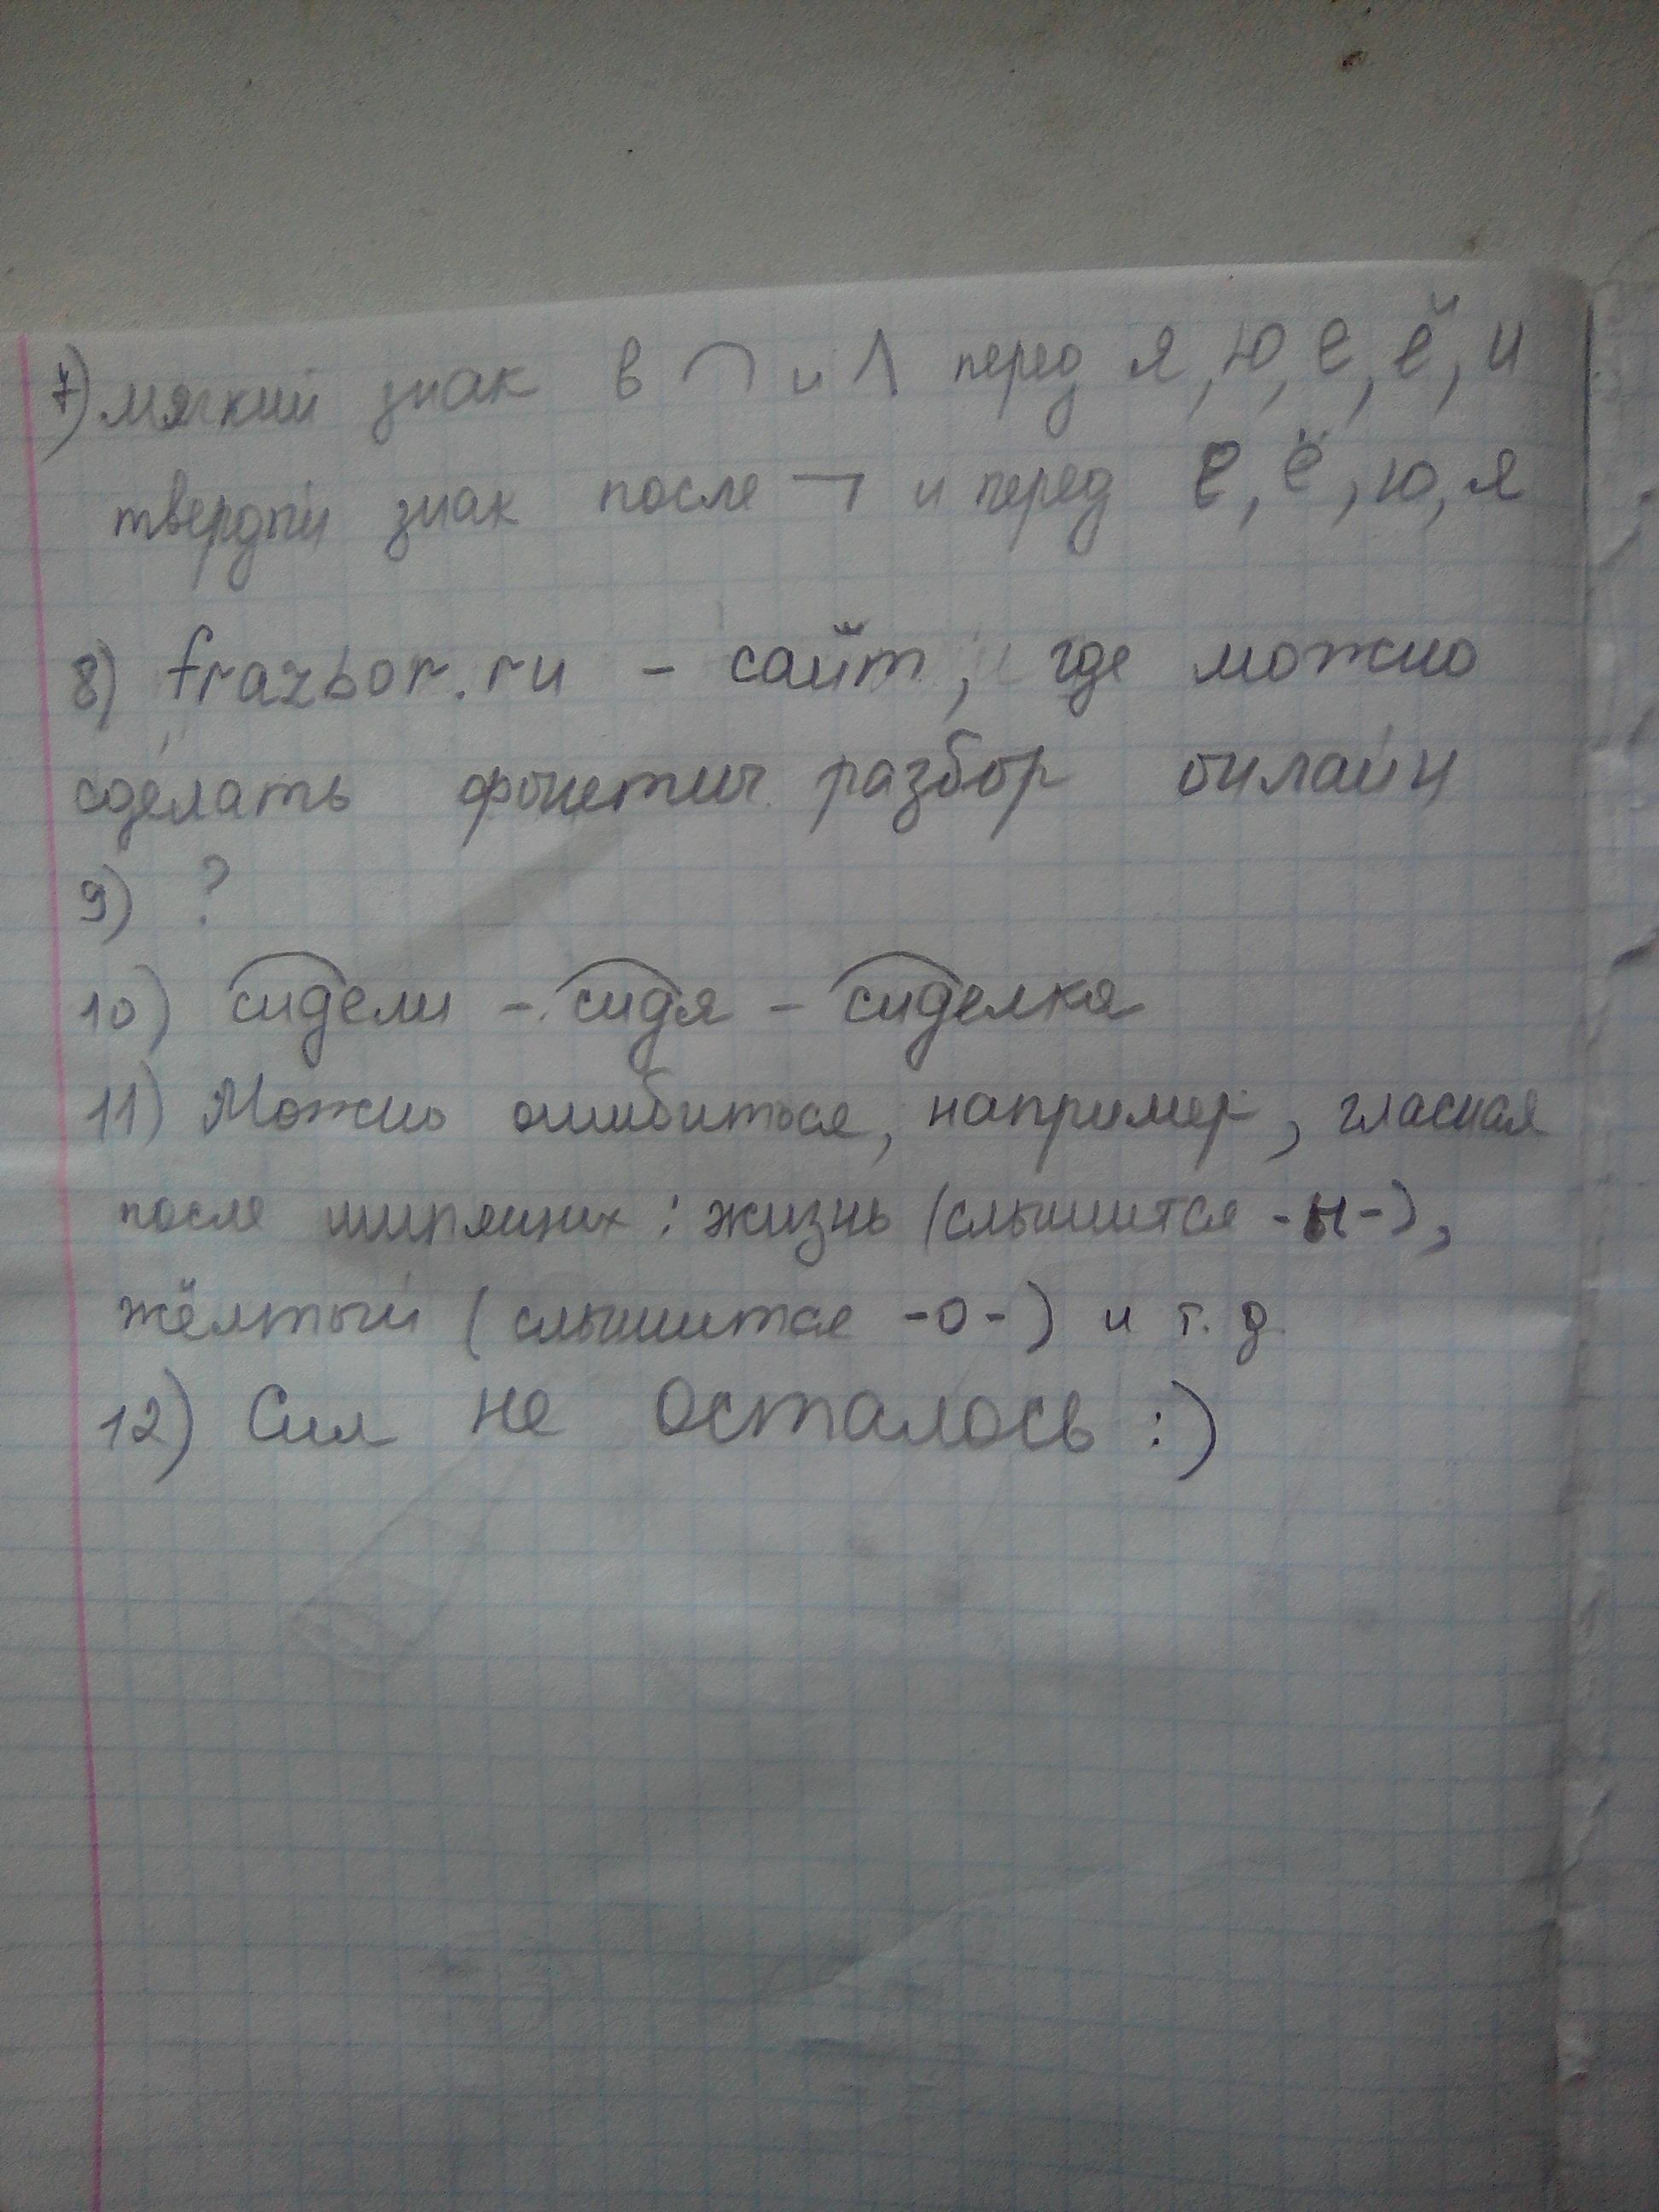 7) мягкий знак в ⌒ и ^ перед я, ю, е, ё, и
твердый знак после ¬ и перед е, ё, ю, я
8) frazbor.ru - сайт, где можно
сделать фонетич. разбор онлайн
9) ?
10) сидели - сидя - сиделка
11) Можно ошибиться, например, гласная
после шипящих: жизнь (слышится -ы-),
жёлтый (слышится -о-) и т.д
12) Сил не осталось :)